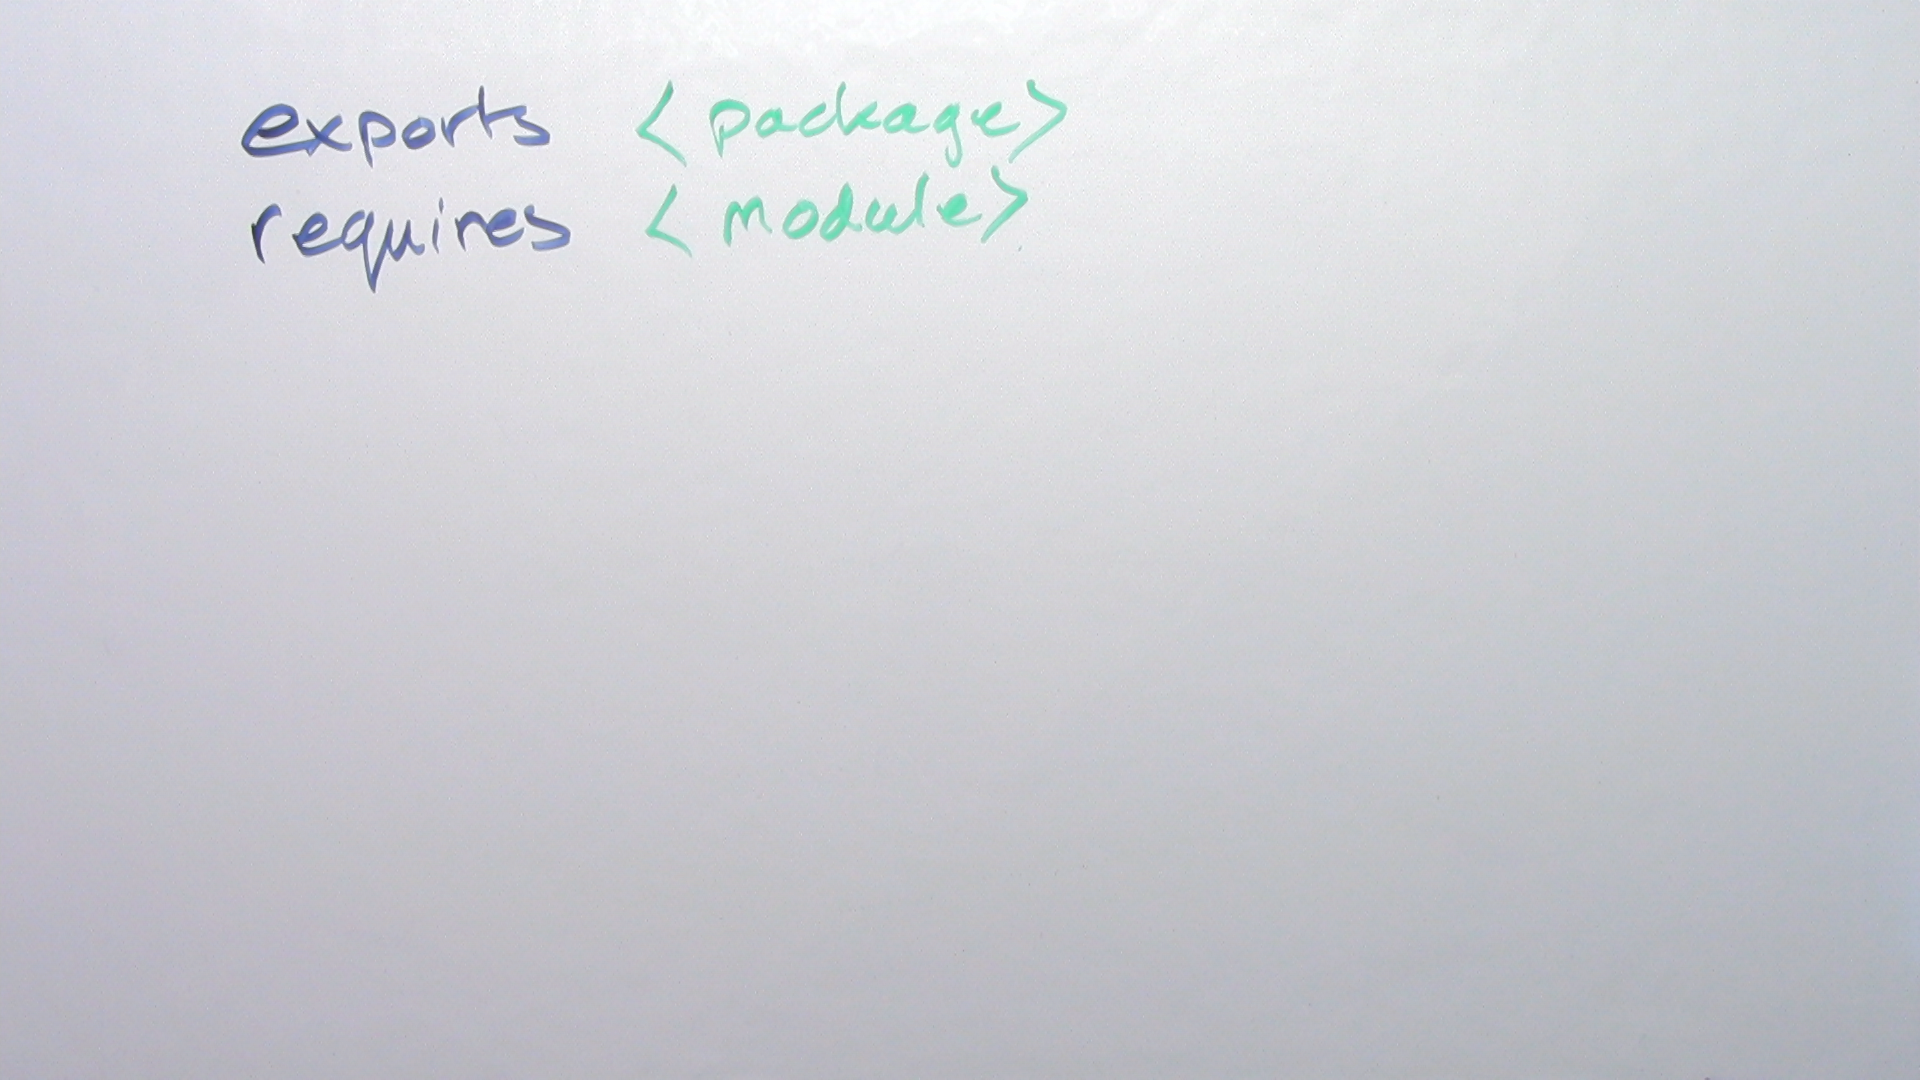 exports <package>
requires <module>